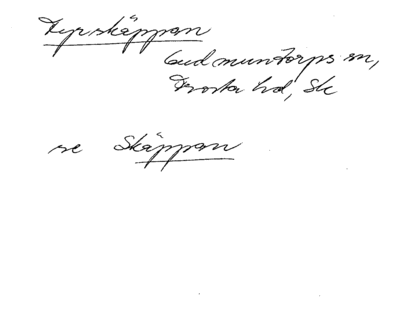 Fyrskäppan
Gudmuntorps sn,
Frosta hd, Sk
se Skäppan